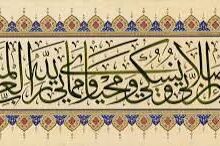 صلاتي ونسكي ومحياي ومماتي لله رب